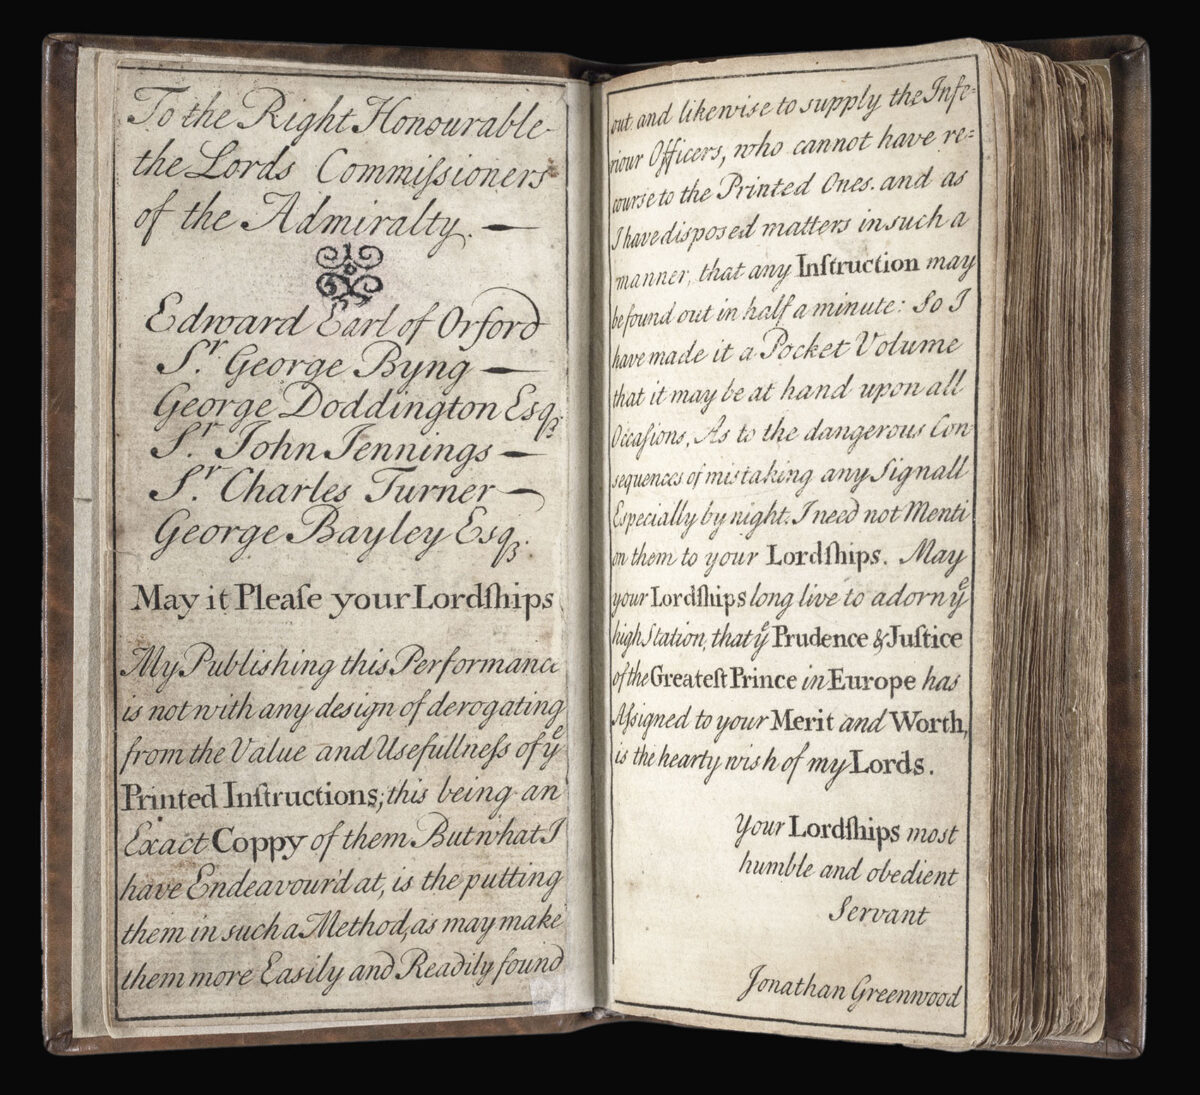 To the Right Honourable
the Lords Commiſsioners
of the Admiralty. —
Edward Earl of Orford
Sr. George Byng —
George Doddington Esqr.
Sr. John Jennings —
Sr. Charles Turner —
George Bayley Esqr.
May it Pleaſe your Lordſhips
My Publishing this Performance
is not with any design of derogating
from the Value and Usefullneſs of ye
Printed Inſtructions; this being an
Exact Coppy of them But what I
have Endeavour'd at, is the putting
them in such a Method, as may make
them more Easily and Readily found
out and likewise to supply the Infe=
riour Officers, who cannot have re=
course to the Printed Ones. and as
I have disposed matters in such a
manner, that any Inſtruction may
be found out in half a minute: So I
have made it a Pocket Volume
that it may be at hand upon all
Occaſions, As to the dangerous Con
sequences of mistaking any Signall
Especially by night. I need not Menti
on them to your Lordſhips. May
your Lordſhips long live to adorn ye
high Station, that ye Prudence & Juſtice
of the Greateſt Prince in Europe has
Aſsigned to your Merit and Worth,
is the hearty wish of my Lords.
Your Lordſhips most
humble and obedient
Servant
Jonathan Greenwood